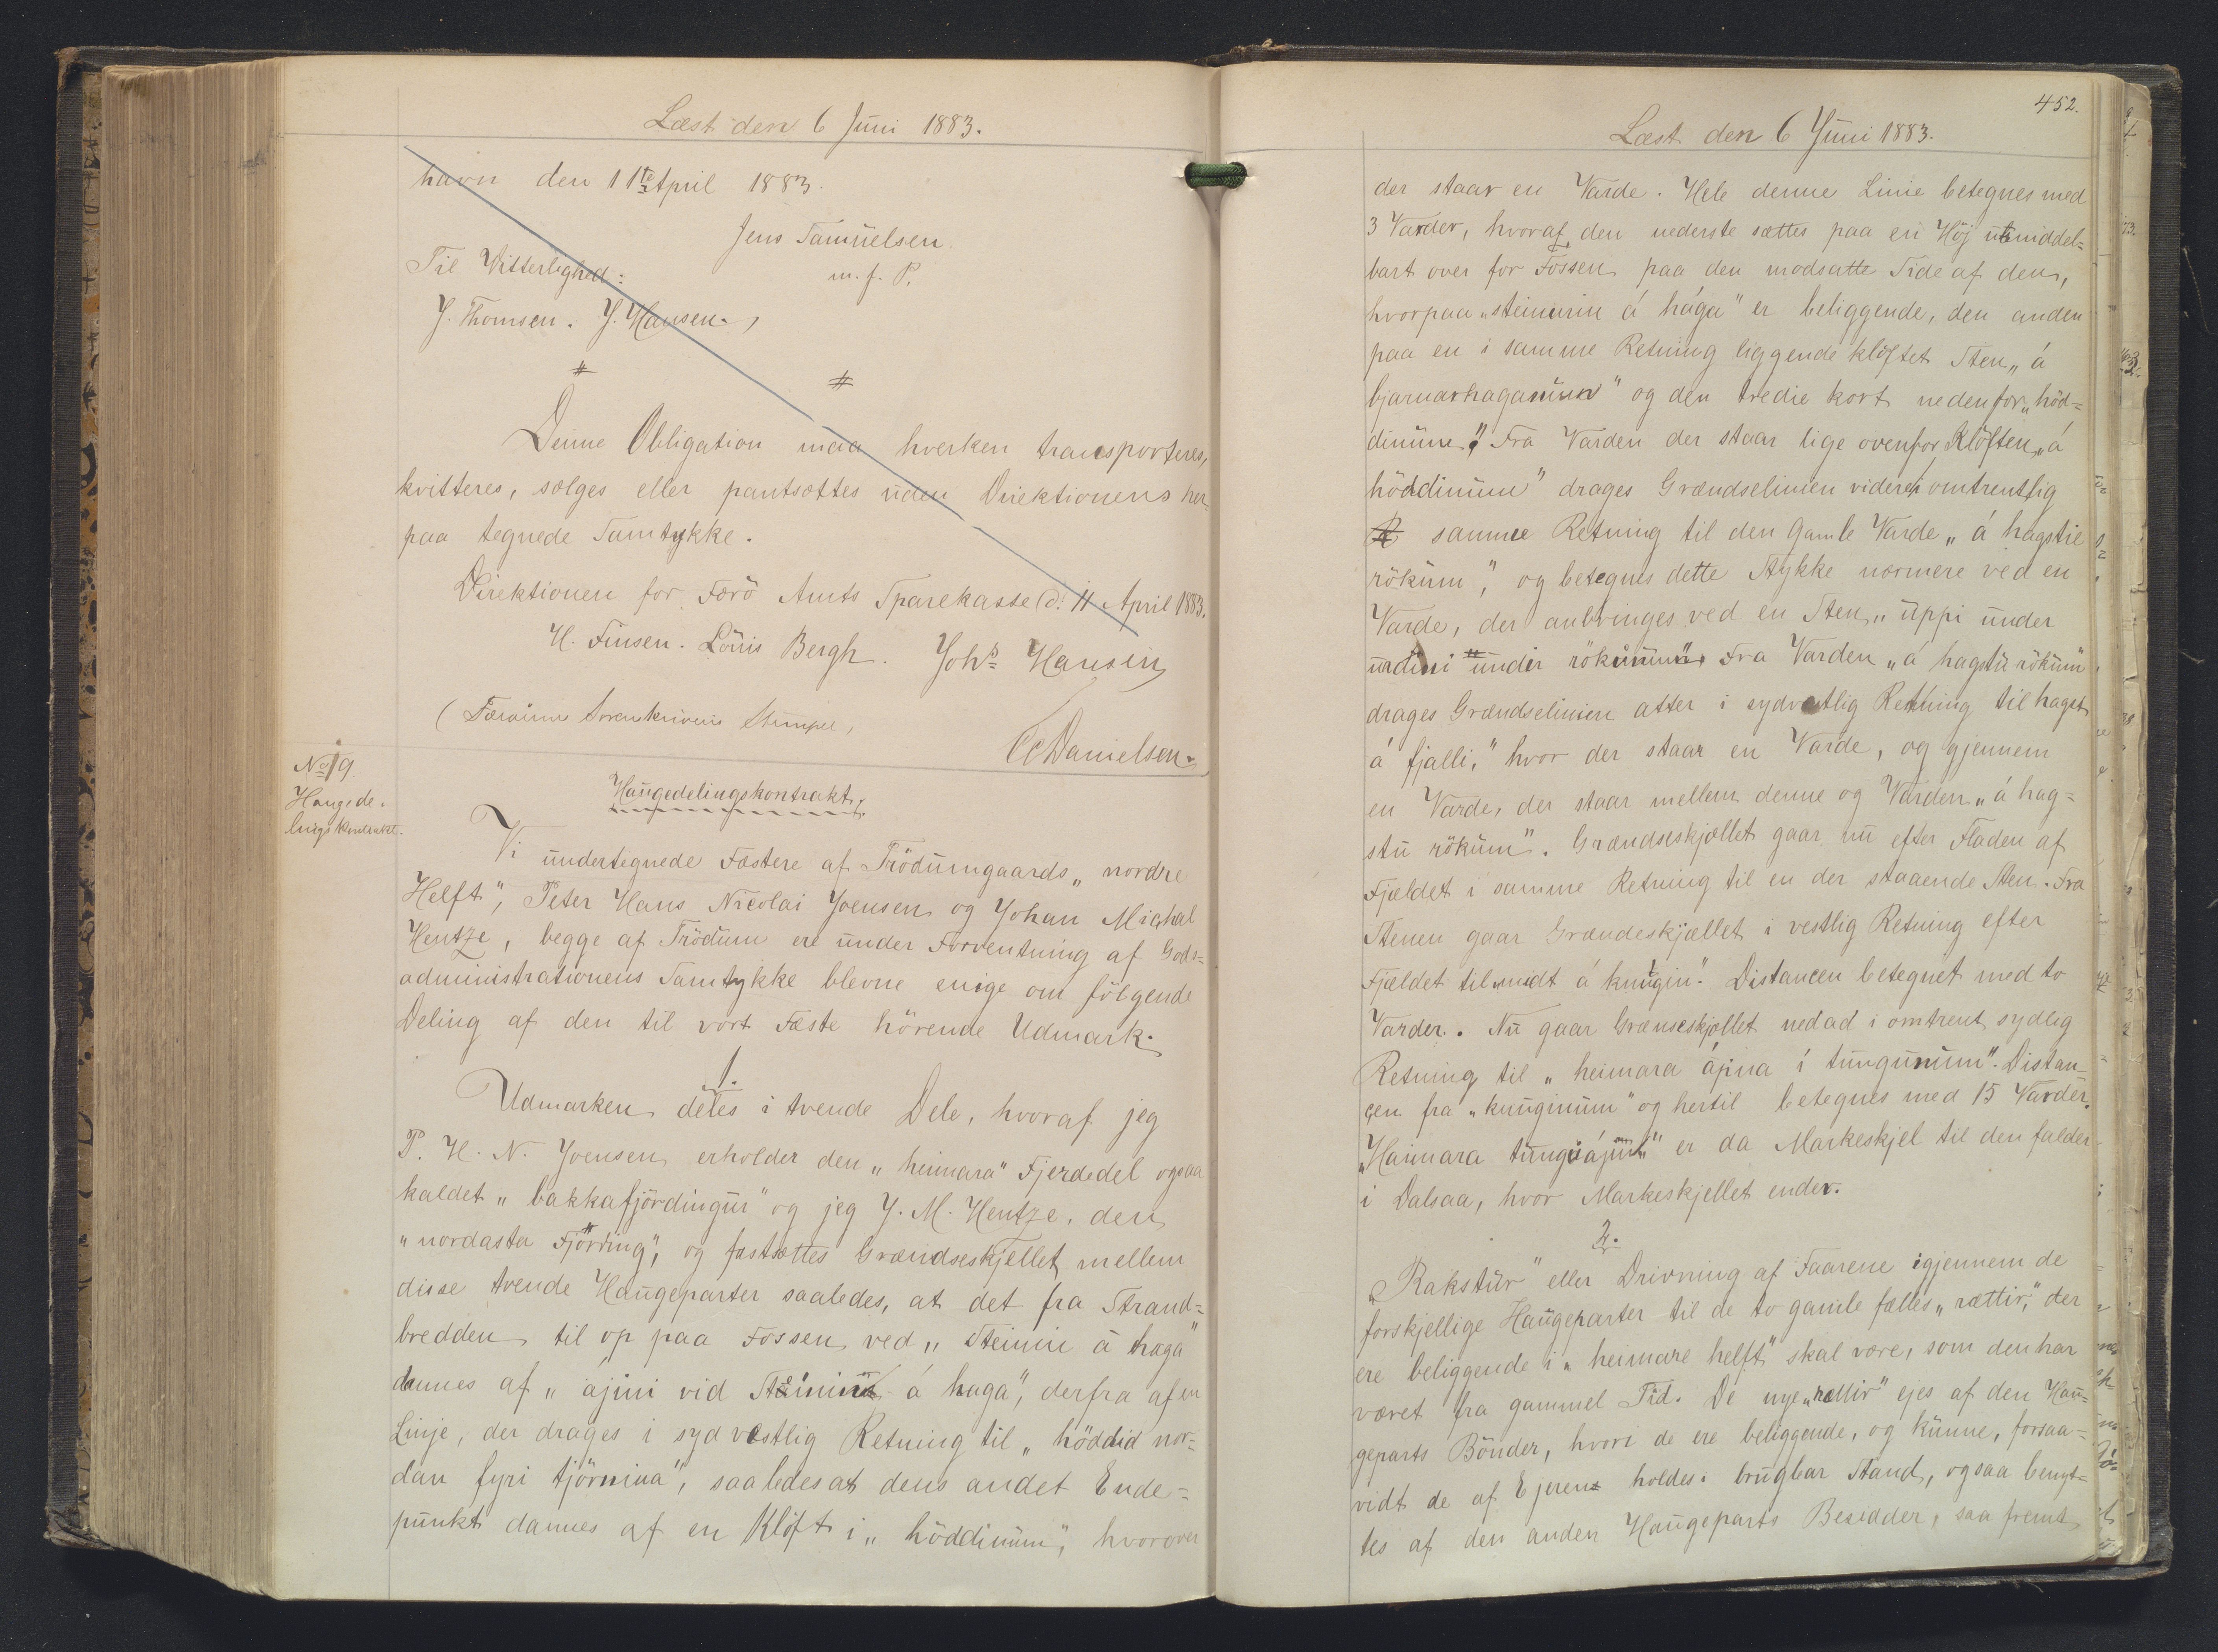 Læst den 6 Juni 1883.
havn den 11te April 1883.
Jens Samuelsen
m. f. P.
Til Vitterlighed:
J. Thomsen. J. Hansen.
Denne Obligation maa hverken transporteres,
kvitteres, sælges eller pantsættes uden Direktionens her-
paa tegnede Samtykke.
Direktionen for Færö Amts Sparekasse d. 11 April 1883.
H. Finsen. Louis Bergh. Johs Hansen
(Færøerne Sorenskriveris Stempel,
CDanielsen.
No 19.
Haugede-
lingskontrakt.
Haugedelingskontrakt.
Vi undertegnede Fæstere af Tródumgaards „nordre
Helft", Peter Hans Nicolai Joensen og Johan Michal
Hentze, begge af Trödum ere under Forventning af Gods-
administrationens Samtykke blevne enige om fölgende
Deling af den til vort Fæste hörende Udmark.
1.
Udmarken deles i tvende Dele, hvoraf jeg
P. H. N. Joensen erholder den „heimara" Fjerdedel ogsaa
kaldet „bakkafjórdingur" og jeg J. M. Hentze, den
„nordasta Fjórding", og fastsættes Grændseskjellet mellem
disse tvende Haugeparter saaledes, at det fra Strand-
bredden til op paa Fossen ved „Steinin á haga"
dannes af „ájini vid Steinin á haga", derfra af en
Linje, der drages i sydvestlig Retning til „höddid nor-
dan fyri tjörnina", saaledes at dens andet Ende-
punkt dannes af en Klöft i „höddinum", hvorover
452.
Læst den 6 Juni 1883.
der staar en Varde. Hele denne Linie betegnes med
3 Varder, hvoraf den nederste sættes paa en Höj umiddel-
bart over for Fossen paa den modsatte Side af den,
hvorpaa „steinurin á hága" er beliggende, den anden
paa en i samme Retning liggende klöftet Sten „á
bjarnarhaganum" og den tredie kort nedenfor „höd-
dinum". Fra Varden der staar lige ovenfor Klöften „á
höddinum" drages Grændselinien videre i omtrentlig
samme Retning til den gamle Varde „á hagstu
rökum", og betegnes dette Stykke nærmere ved en
Varde, der anbringes ved en Sten „uppi under
urdini undir rökunum". Fra Varden „á hagstu rökum"
drages Grændselinien atter i sydvestlig Retning til hagst
á fjalli," hvor der staar en Varde, og gjennem
en Varde, der staar mellem denne og Varden „á hag-
stu rökum". Grændseskjællet gaar nu efter Fladen af
Fjældet i samme Retning til en der staaende Sten. Fra
Stenen gaar Grændeskjællet i vestlig Retning efter
Fjældet til „midt á knugin". Distancen betegnet med to
Varder. Nu gaar Grænseskjellet nedad i omtrent sydlig
Retning til „heimara ájina i tungunum". Distan-
cen fra „knuginum" og hertil betegnes med 15 Varder.
er da Markeskjel til den falder
i Dalsaa, hvor Markeskjellet ender.
2.
„Rakstur" eller Drivning af Faarene igjennem de
forskjellige Haugeparter til de to gamle fælles „rættir", der
ere beliggende i „heimare helft" skal være, som den har
været fra gammel Tid. De nye „rættir" ejes af den Hau-
geparts Bönder, hvori de ere beliggende, og kunne, forsaa-
vidt de af Ejeren holdes i brugbar Stand, ogsaa benyt-
tes af den anden Haugeparts Besidder, saa fremt